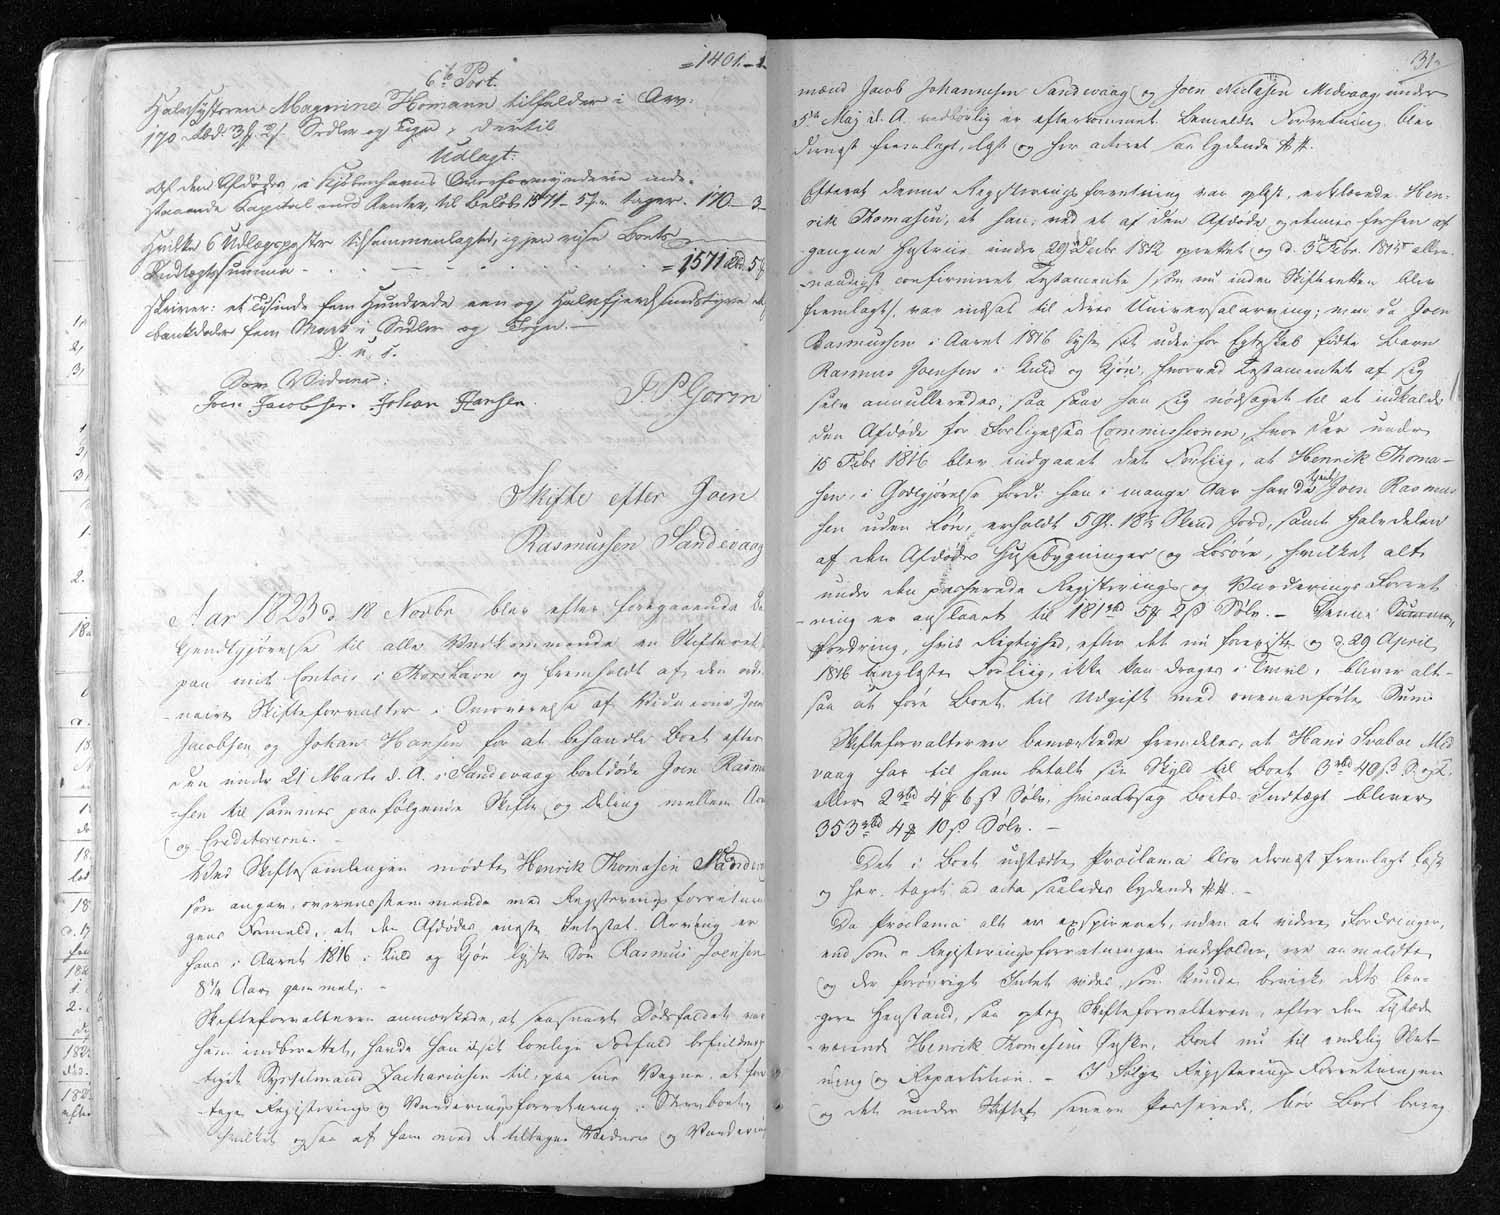 = 1401 - 1
6te Post.
Halvsysteren Magnine Homann tilfalder i Arv:
170 Rbd. 3 ß. Sedler og Tegn, dertil
Udlagt:
Af den Afdødes, i Kjöbenhavns Overformynderie inde-
staaende Capital med Renter, til Beløb 1571 - 5 - tages. 170 - 3 -
Hvilke 6 Udlægsposter tilsammenlagte, igjen viise Boets
Indtægtssumma - - - = 1571 Rbd. 5
skriver: et Tusinde fem Hundrede een og Halvfjerdsindstyve
bankdaler fem Mark i Sedler og Tegn. —
D. u. s.
Som Vidner:
Joen Jacobsen. Johan Hansen. J P Gorin
Skifte efter Joen
Rasmussen Sandevaag
Aar 1823 d 18 Novbr blev efter foregaaende Be
kjendtgjørelse til alle Vedkommende en Skifteret
paa mit Contoir i Thorshavn og fremholdt af den ordi-
naire Skifteforvalter i Overværelse af Vidnerne Joen
Jacobsen og Johan Hansen for at behandle Boet efter
den under 21 Marts d. A. i Sandevaag bortdøde Joen Rasmu
sen til sammes paafølgende Skifte og Deling mellem Arv
og Creditorerne. -
Ved Skiftesamlingen mødte Henrik Thomasen
som angav, overeensstemmende med Registerings forretnin
gens Formeld, at den Afdødes eneste Intestat Arving er
hans i Aaret 1816 i Kuld og Kjøn lyste Søn Rasmus Joensen
8¼ Aar gammel. -
Skifteforvalteren anmærkede, at saasnart Dødsfaldet var
ham indberettet, havde han i sit lovlige Forfald befuldmæg
tiget Sysselmand Zachariasen til, paa sine Vegne, at fore
tage Registerings og Vurderingsforretning i Stervboet,
hvilket ogsaa af ham med de tiltagne Vidner og Vurderings
31
mænd Jacob Johannesen Sandevaag og Joen Niclasen Midvaag under
5te Maj d. A. nedbørlig er efterkommet. Bemeldte Forretning blev
dernæst fremlagt, læst og her acteret saalydende ##.
Efterat denne Registeringsforretning var oplæst, erklærede Hen-
rik Thomasen, at han, ved et af den Afdøde og dennes forhen af-
gangne Hustrue under 29 Decbr 1812 oprettet og d. 3die Febr. 1815 aller-
naadigst confirmeret Testamente /: som nu inden Skifteretten blev
fremlagt :/ var indsat til deres Universalarving; men da Joen
Rasmussen i Aaret 1816 lyste sit udenfor Egteskab fødte Barn
Rasmus Joensen i Kuld og Kjøn, hvorved Testamentet af sig
selv annulleredes, saa saae han sig nødsaget til at indkalde
den Afdøde for Forligelses Commissionen, hvor der under
15 Febr 1816 blev indgaaet det Forliig, at Henrik Thoma-
sen, i Godtgjørelse fordi han i mange Aar havde tjent Joen Rasmus
sen uden Løn, erholdt 5 Gl. 18½ Skind Jord, samt Halvdelen
af den Afdødes Huusebygninger og Løsøre, hvilket alt
under den passerede Registerings og Vurderings Forret
ning er anslaaet til 181 rbd 5 ₰ 2 ß Sølv. - Denne
Fordring, hvis Rigtighed, efter det nu foreviiste og d. 29 April
1816 tinglæste Forliig, ikke kan drages i Tvivl, bliver alt-
saa at føre Boet til Udgift med ovenanførte Sum
Skifteforvalteren bemærkede fremdeles, at Hans Svaboe Mid
vaag har til ham betalt sin Skyld til Boet 3 rbd 40 ß S. og T.
eller 2 rbd 4 ₰ 6 ß Sølv, hvisaarsag Boets Indtægt bliver
353 rbd 4 ₰ 10 ß Sølv. -
Det i Boet udstædte Proclama blev dernæst fremlagt læst
og her taget ad acta saaledes lydende ##. -
Da Proclama alt er exspireret, uden at videre Fordringer,
end som Registeringsforretningen indeholder, ere anmeldte
og der forøvrigt Intet vides, som kunde bevirke dets læn-
gere Henstand, saa optog Skifteforvalteren, efter den tilstæde
værende Henrik Thomasens Ønske, Boet nu til endelig Slut-
ning og Repartition. - I Følge Registerings Forretningen
og det under Skiftet senere Passerede, bør Boet bereg